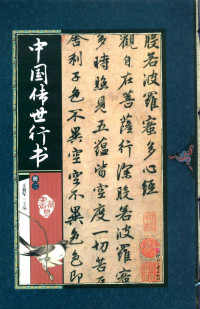 中国传世行书
般若波羅蜜多心經
觀自在菩薩行深般若波羅
多時照見五蘊皆空度一切苦
舍利子色不異空空不異色色即